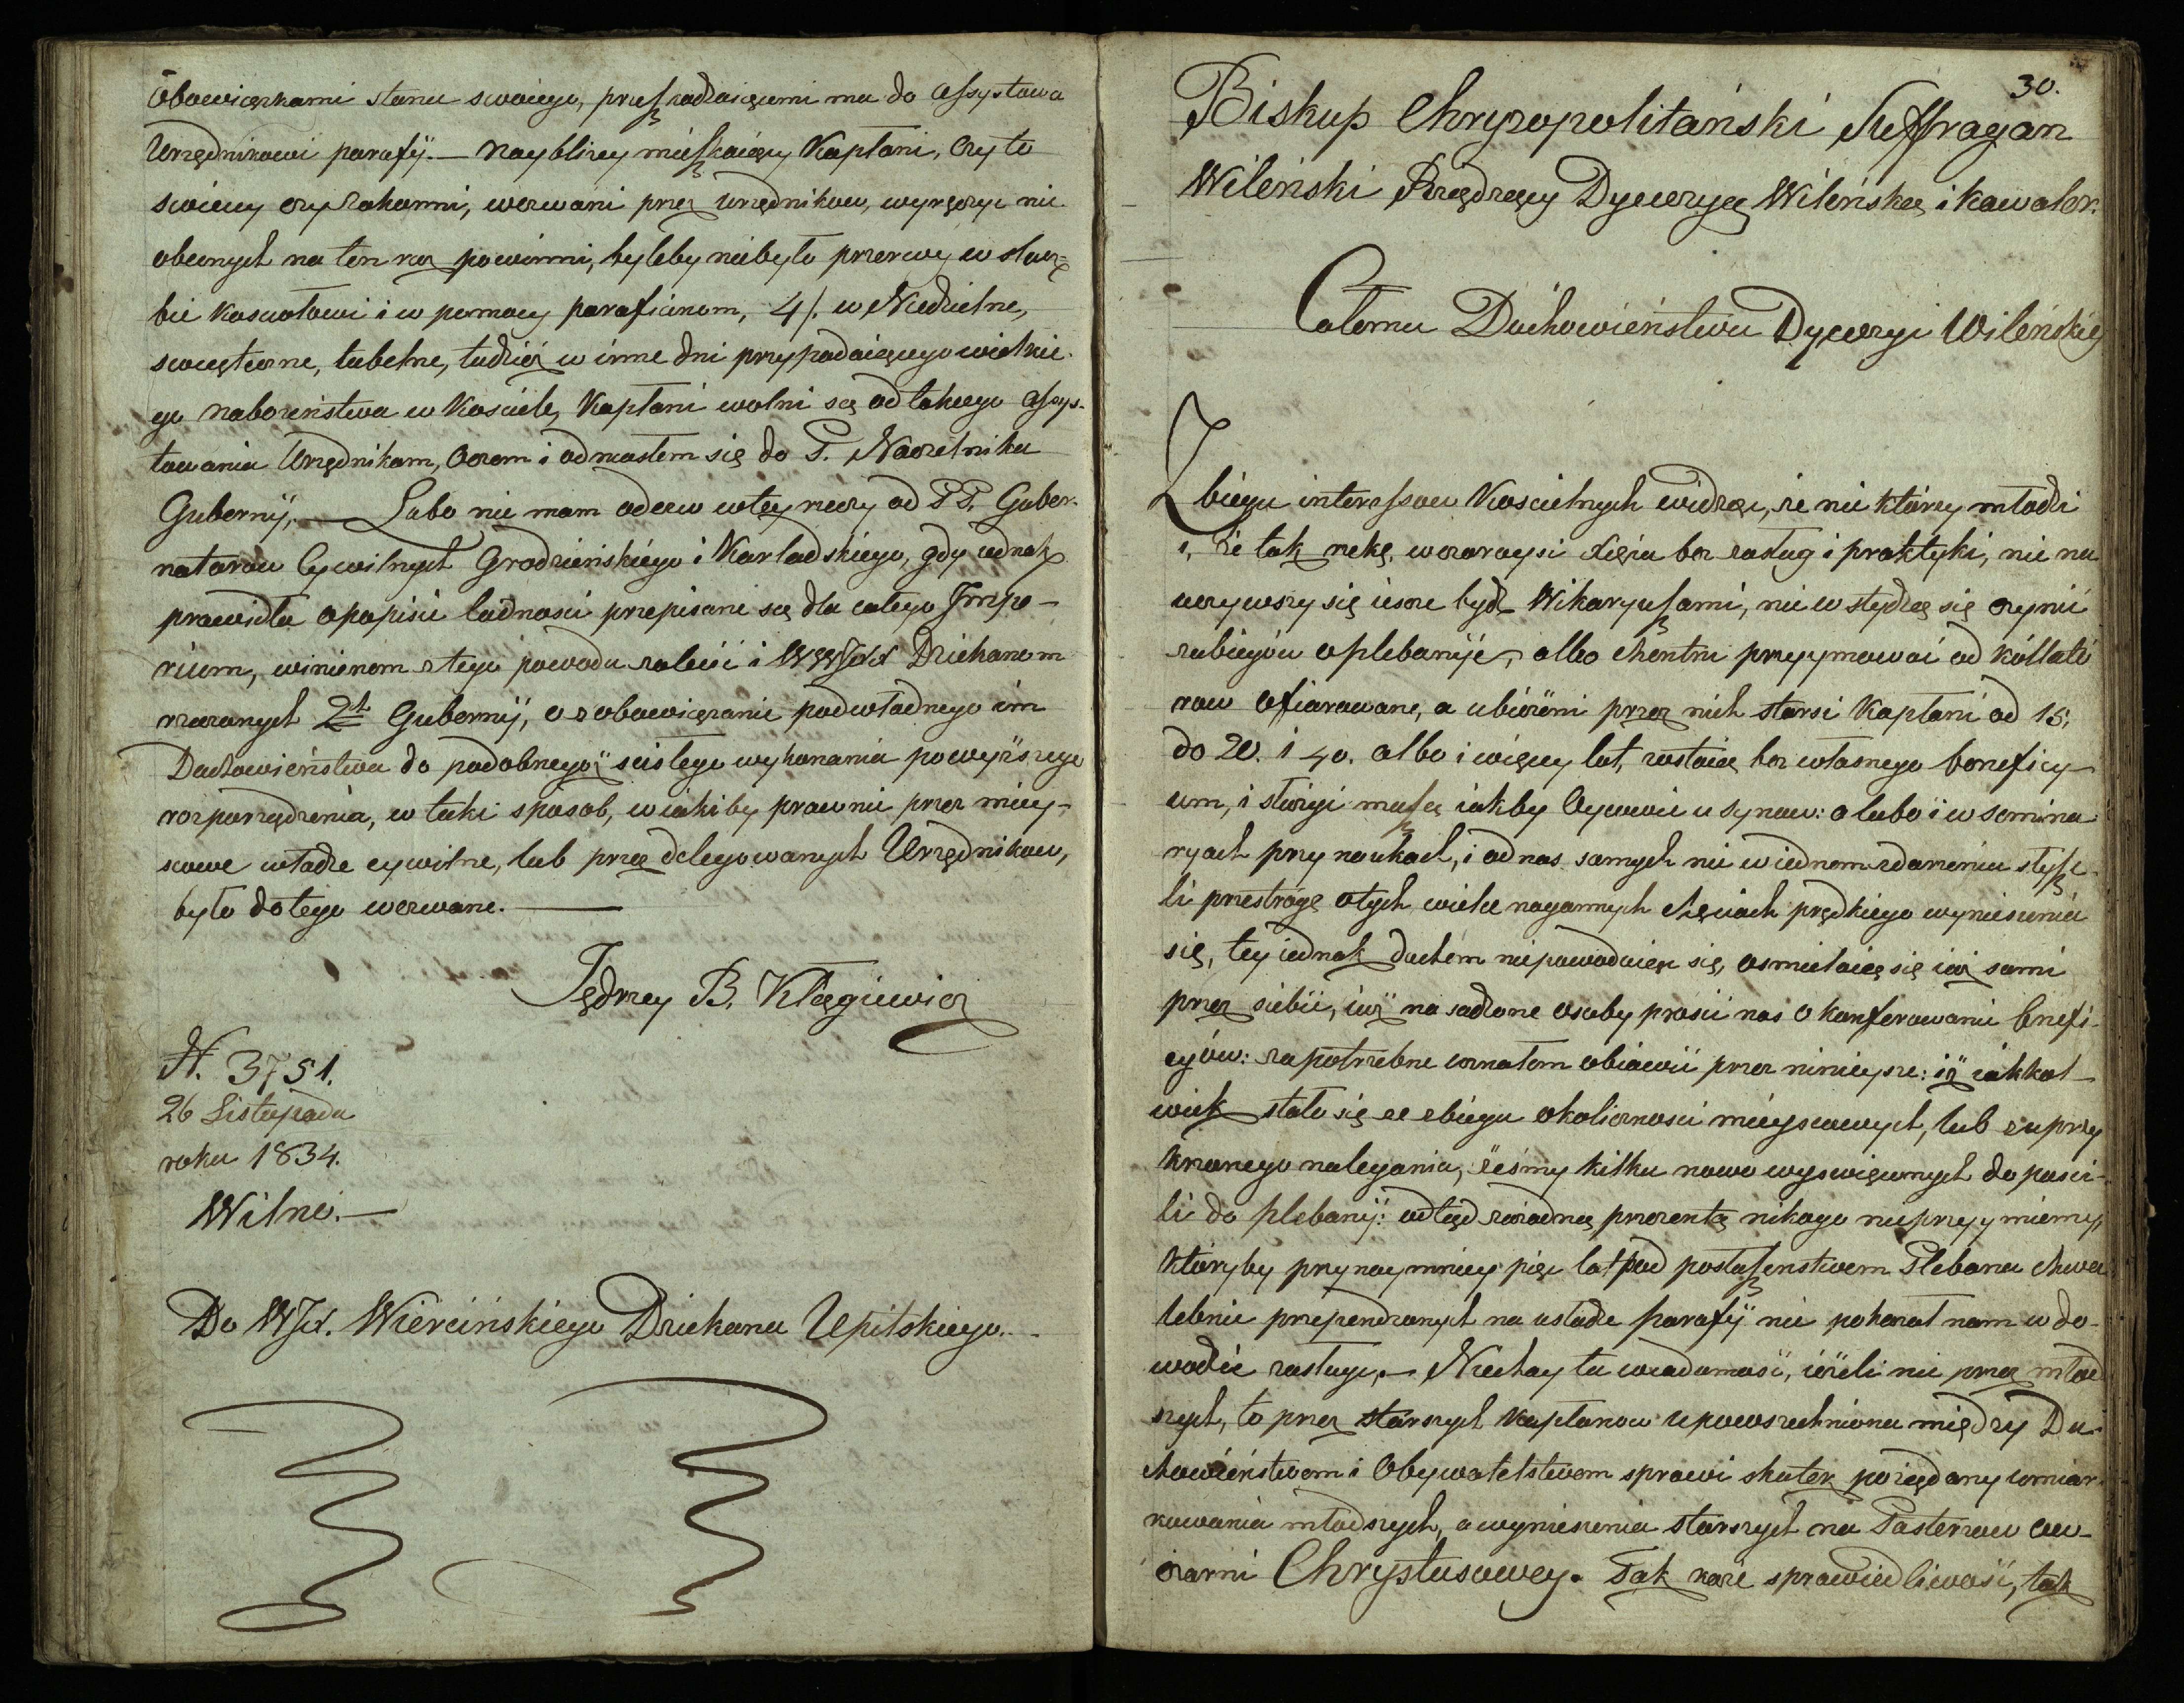 obowiązkami stanu swoiego, przeszkadzaiącemi mu do assystowa
Urzędnikowi parafij.— nayblizey mieszkaiący Kapłani, czy to
swieccy czy Zakonni, wezwani przez urzędnikow, wyręczyć nie
obecnych na ten raz powinni, byleby niebyło przerwy w słuz=
bie Kosciołowi i w pomocy parafianom, 4/. w Niedzielne,
swiąteczne, tabelne, tudzież w inne dni przypadaiącego wielkie-
go nabozeństwa w Kosciele, Kapłani wolni są od takiego assys-
towania Urzędnikom, oczem i odniosłem się do P. Naczelnika
Gubernij.— Lubo nie mam odezw w tey rzeczy od PP. Guber-
natorow Cywilnych Grodzieńskiego i Kurladskiego, gdy iednak
prawidła o popisie ludnosci przepisane są dla całego Impe-
rium, winienem z tego powodu zalecić i WWJXX Dziekanom
rzeczonych 2ch Gubernij, o zobowiązanie podwładnego im
Duchowieństwa do podobnegoż scisłego wykonania powyższego
rozporządzenia, w taki sposob, w iakiby prawnie przez miey-
scowe władze cywilne, lub przez delegowanych Urzędnikow,
było do tego wezwane.—
Jędrzey B. Kłągiewicz
N. 3751.
26 Listopada
roku 1834.
Wilno.—
Do WJX. Wiercińskiego Dziekana Upitskiego.
30.
Biskup Chryzopolitański Suffragan
Wileński Rządzący Dyecezyą Wileńską i Kawaler.
Całemu Duchowieństwu Dyecezyi Wileńskiey
Zbiegu interessow Koscielnych widząc, że nie którzy młodzi
i, że tak rzekę, wczoraysi Xięża bez zasług i praktyki, nie na
uczywszy się ieszcze bydź Wikaryuszami, nie wstydzą się czynić
zabiegów o plebanije, albo chentni przyymować od kóllato
row ofiarowane, a ubiożeni przez nich starsi Kapłani od 15.
do 20. i 40. albo i więcey lat, zostaią bez własnego beneficy-
um, i służyć muszą iakby Oycowie u synow: a lubo i w semina
ryach przy naukach, i od nas samych nie w iednem zdarzeniu słysze
li przestrogę o tych wielce nagannych chęciach prędkiego wyniesienia
się, tey iednak duchem niepowoduiąc się, osmielaią się iuż sami
przez siebie, iuż na sadzone osoby prosić nas o konferowanie benefi-
cyów: zapotrzebne uznałem obiawić przez ninieysze: iż iakkol-
wiek stało się ze zbiegu okolicznosci mieyscowych, lub z uprzy
krzonego nalegania, żeśmy kilku nowo wyswięconych do pusci-
li do plebanij: odtąd zażadną prezentą nikogo nieprzyymiemy,
któryby przynaymniey pięć lat pod posłuszenstwem Plebana chwa
lebnie przependzonych na usłudze parafij nie pokazał nam w do-
wodzie zasługi,— Niechay ta wiadomość, ieżeli nie przez młod
szych, to przez starszych Kapłanow upowszechniona między Du-
chowieństwem i Obywatelstwem sprawi skutek pożądany umiar-
kowania młodszych, a wyniesienia starszych na Pasterzow ow-
czarni Chrystusowey. Tak każe sprawiedliwość, tak